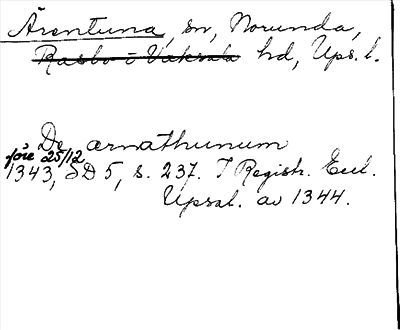 Ärentuna, sn, Norunda,
Rasbo o Vaksala hd, Ups. l.
De ærnathunum
före 25/12
1343, SD 5, s. 237. I Registr. Eccl.
Upsal. av 1344.